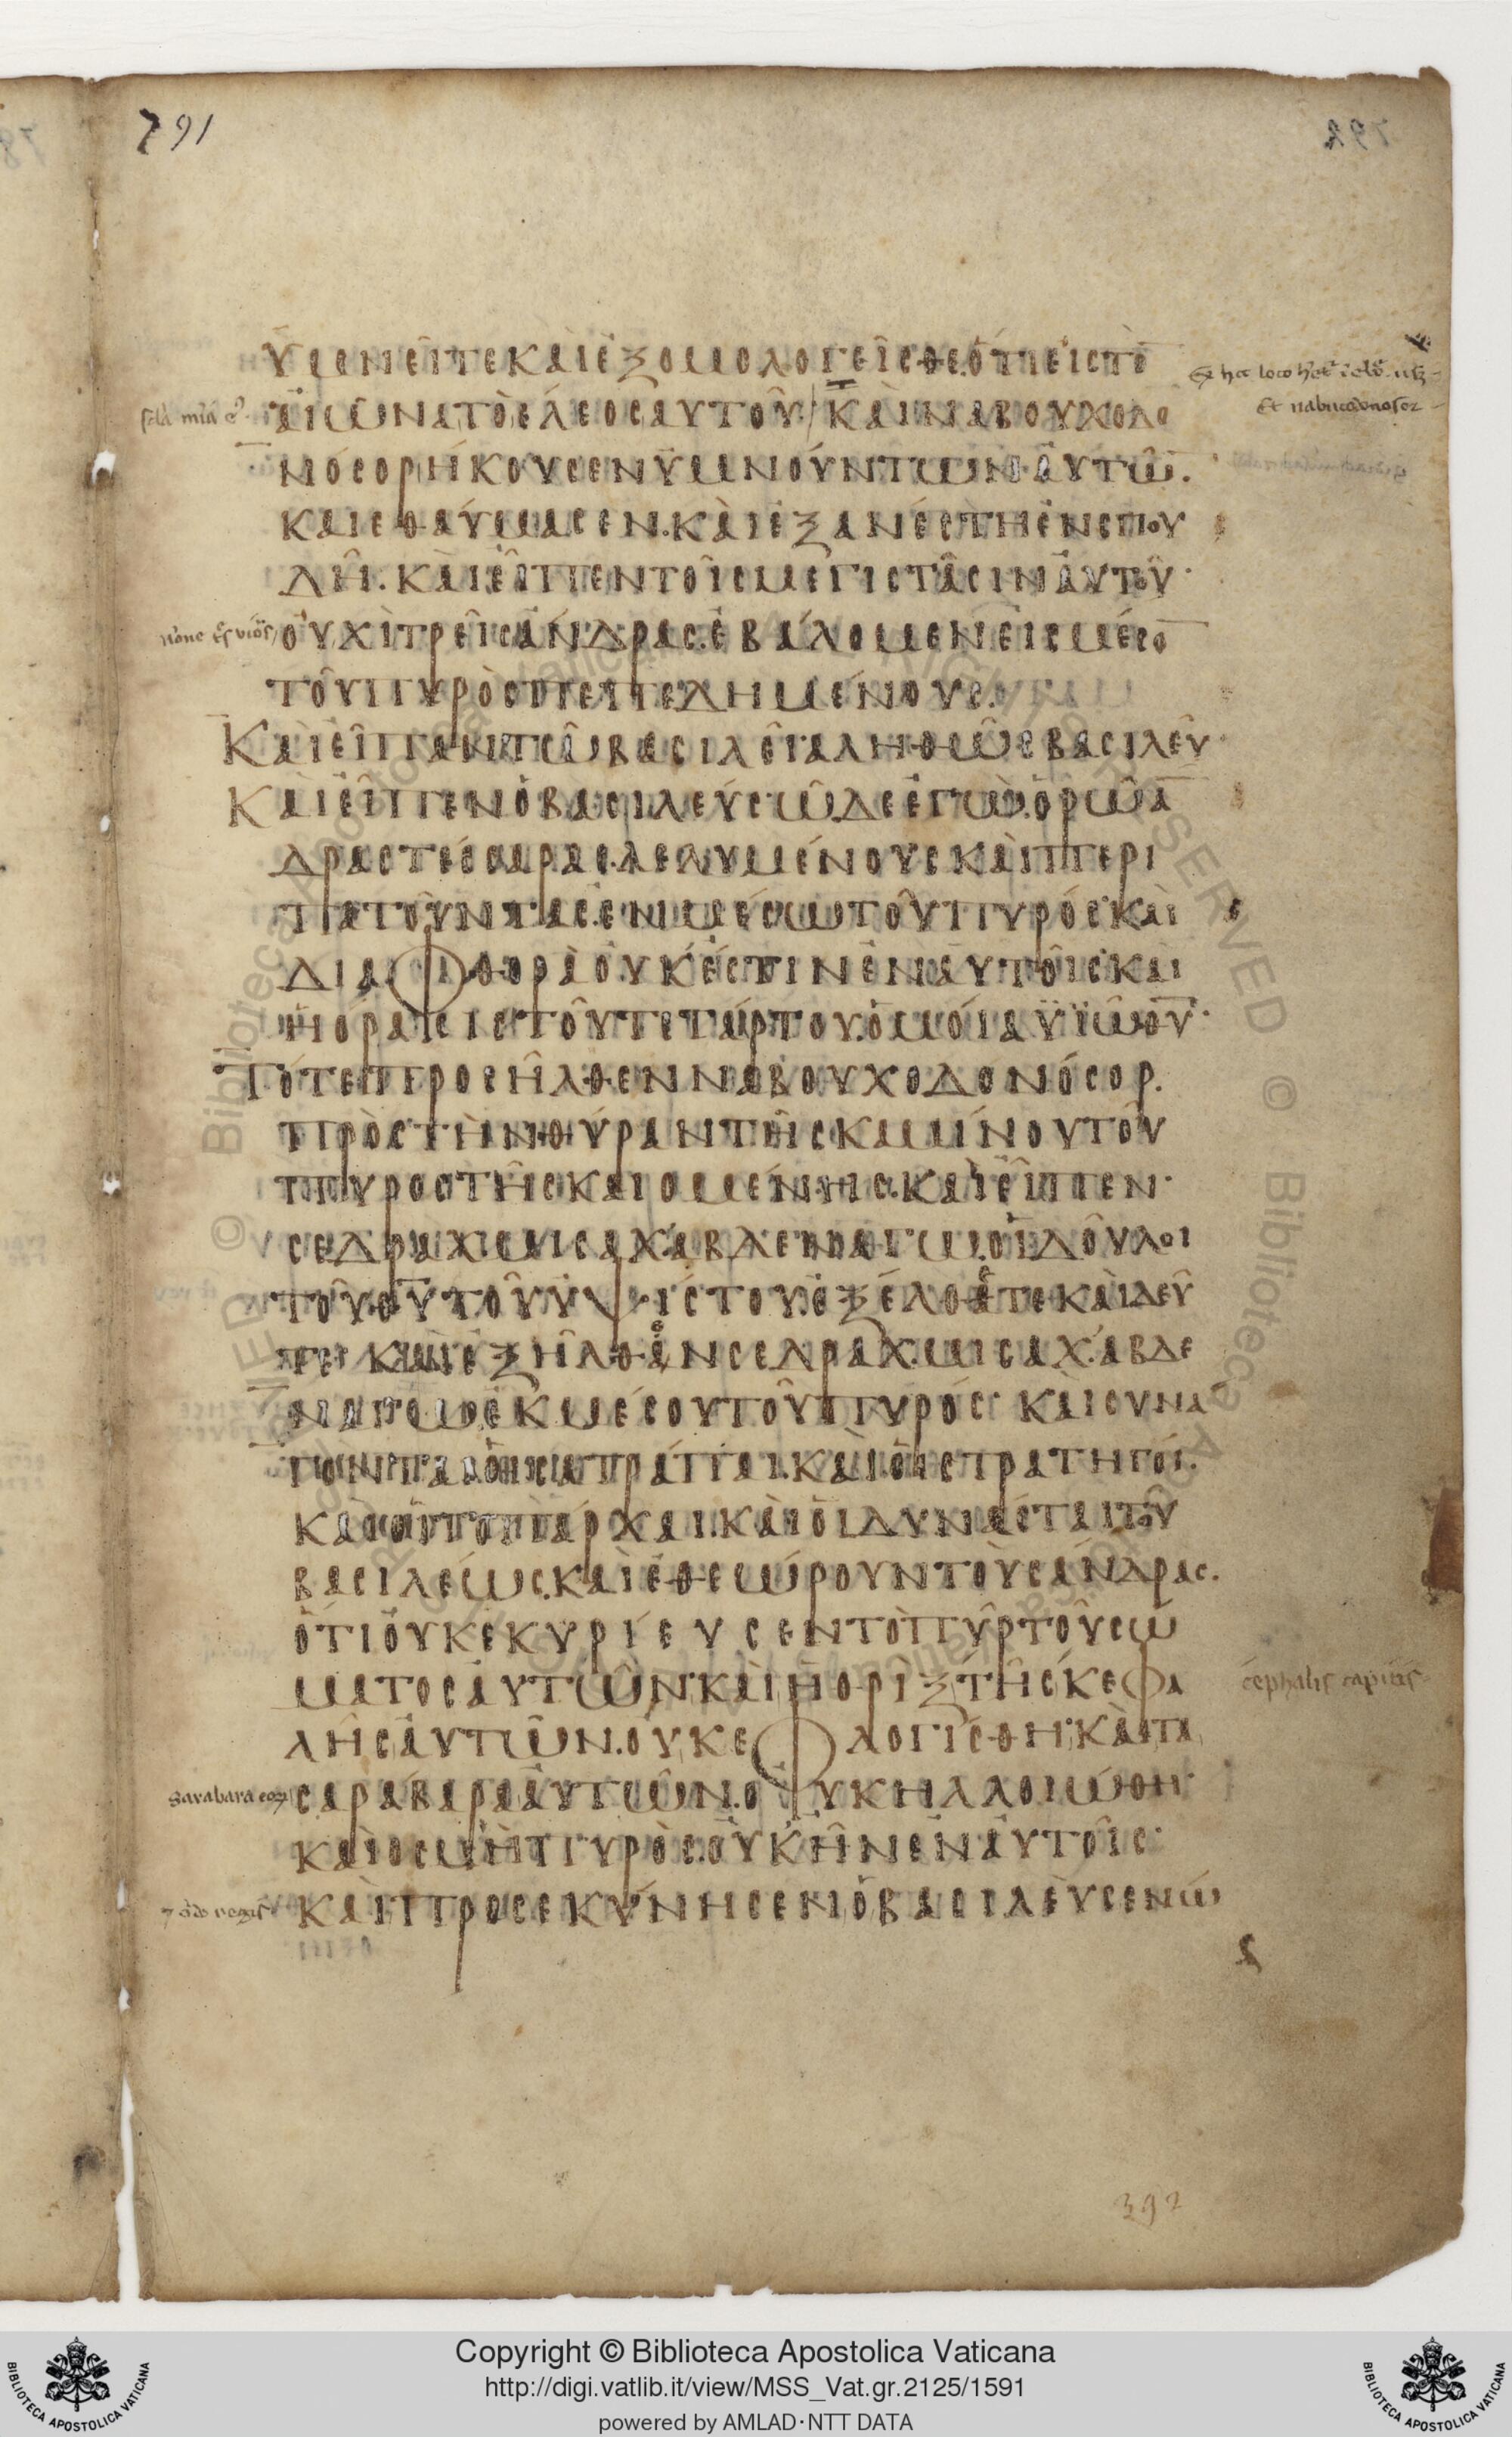 791
ὑμνεῖτε καὶ ἐξομολογεῖσθε. ὅτι εἰς τὸ̅
αἰῶνα τὸ ἔλεος αὐτοῦ· Καὶ Ναβουχοδο
νόσορ ἤκουσεν ὑμνούντων αὐτῶ̅.
καὶ ἐθαύμασεν. καὶ ἐξανέστη ἐν σπου
δῆι. καὶ εἶπεν τοῖς μεγιστᾶσιν αὐτοῦ·
οὐχὶ τρεῖς ἄνδρας ἐβάλομεν εἰς μέσο̅
τοῦ πυρὸς πεπεδημένους.
Καὶ εἶπαν τῶ βασιλεῖ ἀληθῶς βασιλεῦ·
Καὶ εἶπεν ὁ βασιλεύς ὧδε ἐγὼ. ὁρῶ ἄ̅
δρας τέσσαρας. λελυμένους καὶ περι
πατοῦντας ἐν μέσω τοῦ πυρός· καὶ
διαφθορὰ οὐκ ἔστιν ἐν αὐτοῖς· καὶ
ἡ ὅρασις τοῦ τετάρτου. ὁμοία ὑϊῶ θ̅υ̅·
Τότε προσῆλθεν Ναβουχοδονόσορ.
πρὸς τὴν θύραν τῆς καμίνου τοῦ
πυρὸς τῆς καιομένης. καὶ εἶπεν·
σεδραχ μισαχ ἀβδεναγω. οἱ δοῦλοι
τοῦ θ̅υ̅ τοῦ ὑψίστου. ἐξέλθατε καὶ δεῦ
τε· καὶ ἐξῆλθαν σεδραχ. μισαχ. ἀβδε
ναγω ἐκ μέσου τοῦ πυρός· καὶ συνά
γονται οἱ σατράπαι. καὶ οἱ στρατηγοί.
καὶ οἱ τοπάρχαι. καὶ οἱ δυνάσται τοῦ
βασιλέως. καὶ ἐθεώρουν τοὺς ἄνδρας.
ὅτι οὐκ ἐκυρίευσεν τὸ πῦρ τοῦ σώ
ματος αὐτῶν· καὶ ἡ θρὶξ τῆς κεφα
λῆς αὐτῶν. οὐκ ἐφλογίσθη· καὶ τὰ
σαράβαρα αὐτῶν. οὐκ ἠλλοιώθη·
καὶ ὀσμὴ πυρὸς. οὐκ ἦν ἐν αὐτοῖς·
καὶ προσεκύνησεν ὁ βασιλεὺς ἐνώ
Et nabucodonosor
cephalis capitis
392
Copyright © Biblioteca Apostolica Vaticana
http://digi.vatlib.it/view/MSS_Vat.gr.2125/1591
powered by AMLAD·NTT DATA
BIBLIOTECA APOSTOLICA VATICANA
BIBLIOTECA APOSTOLICA VATICANA